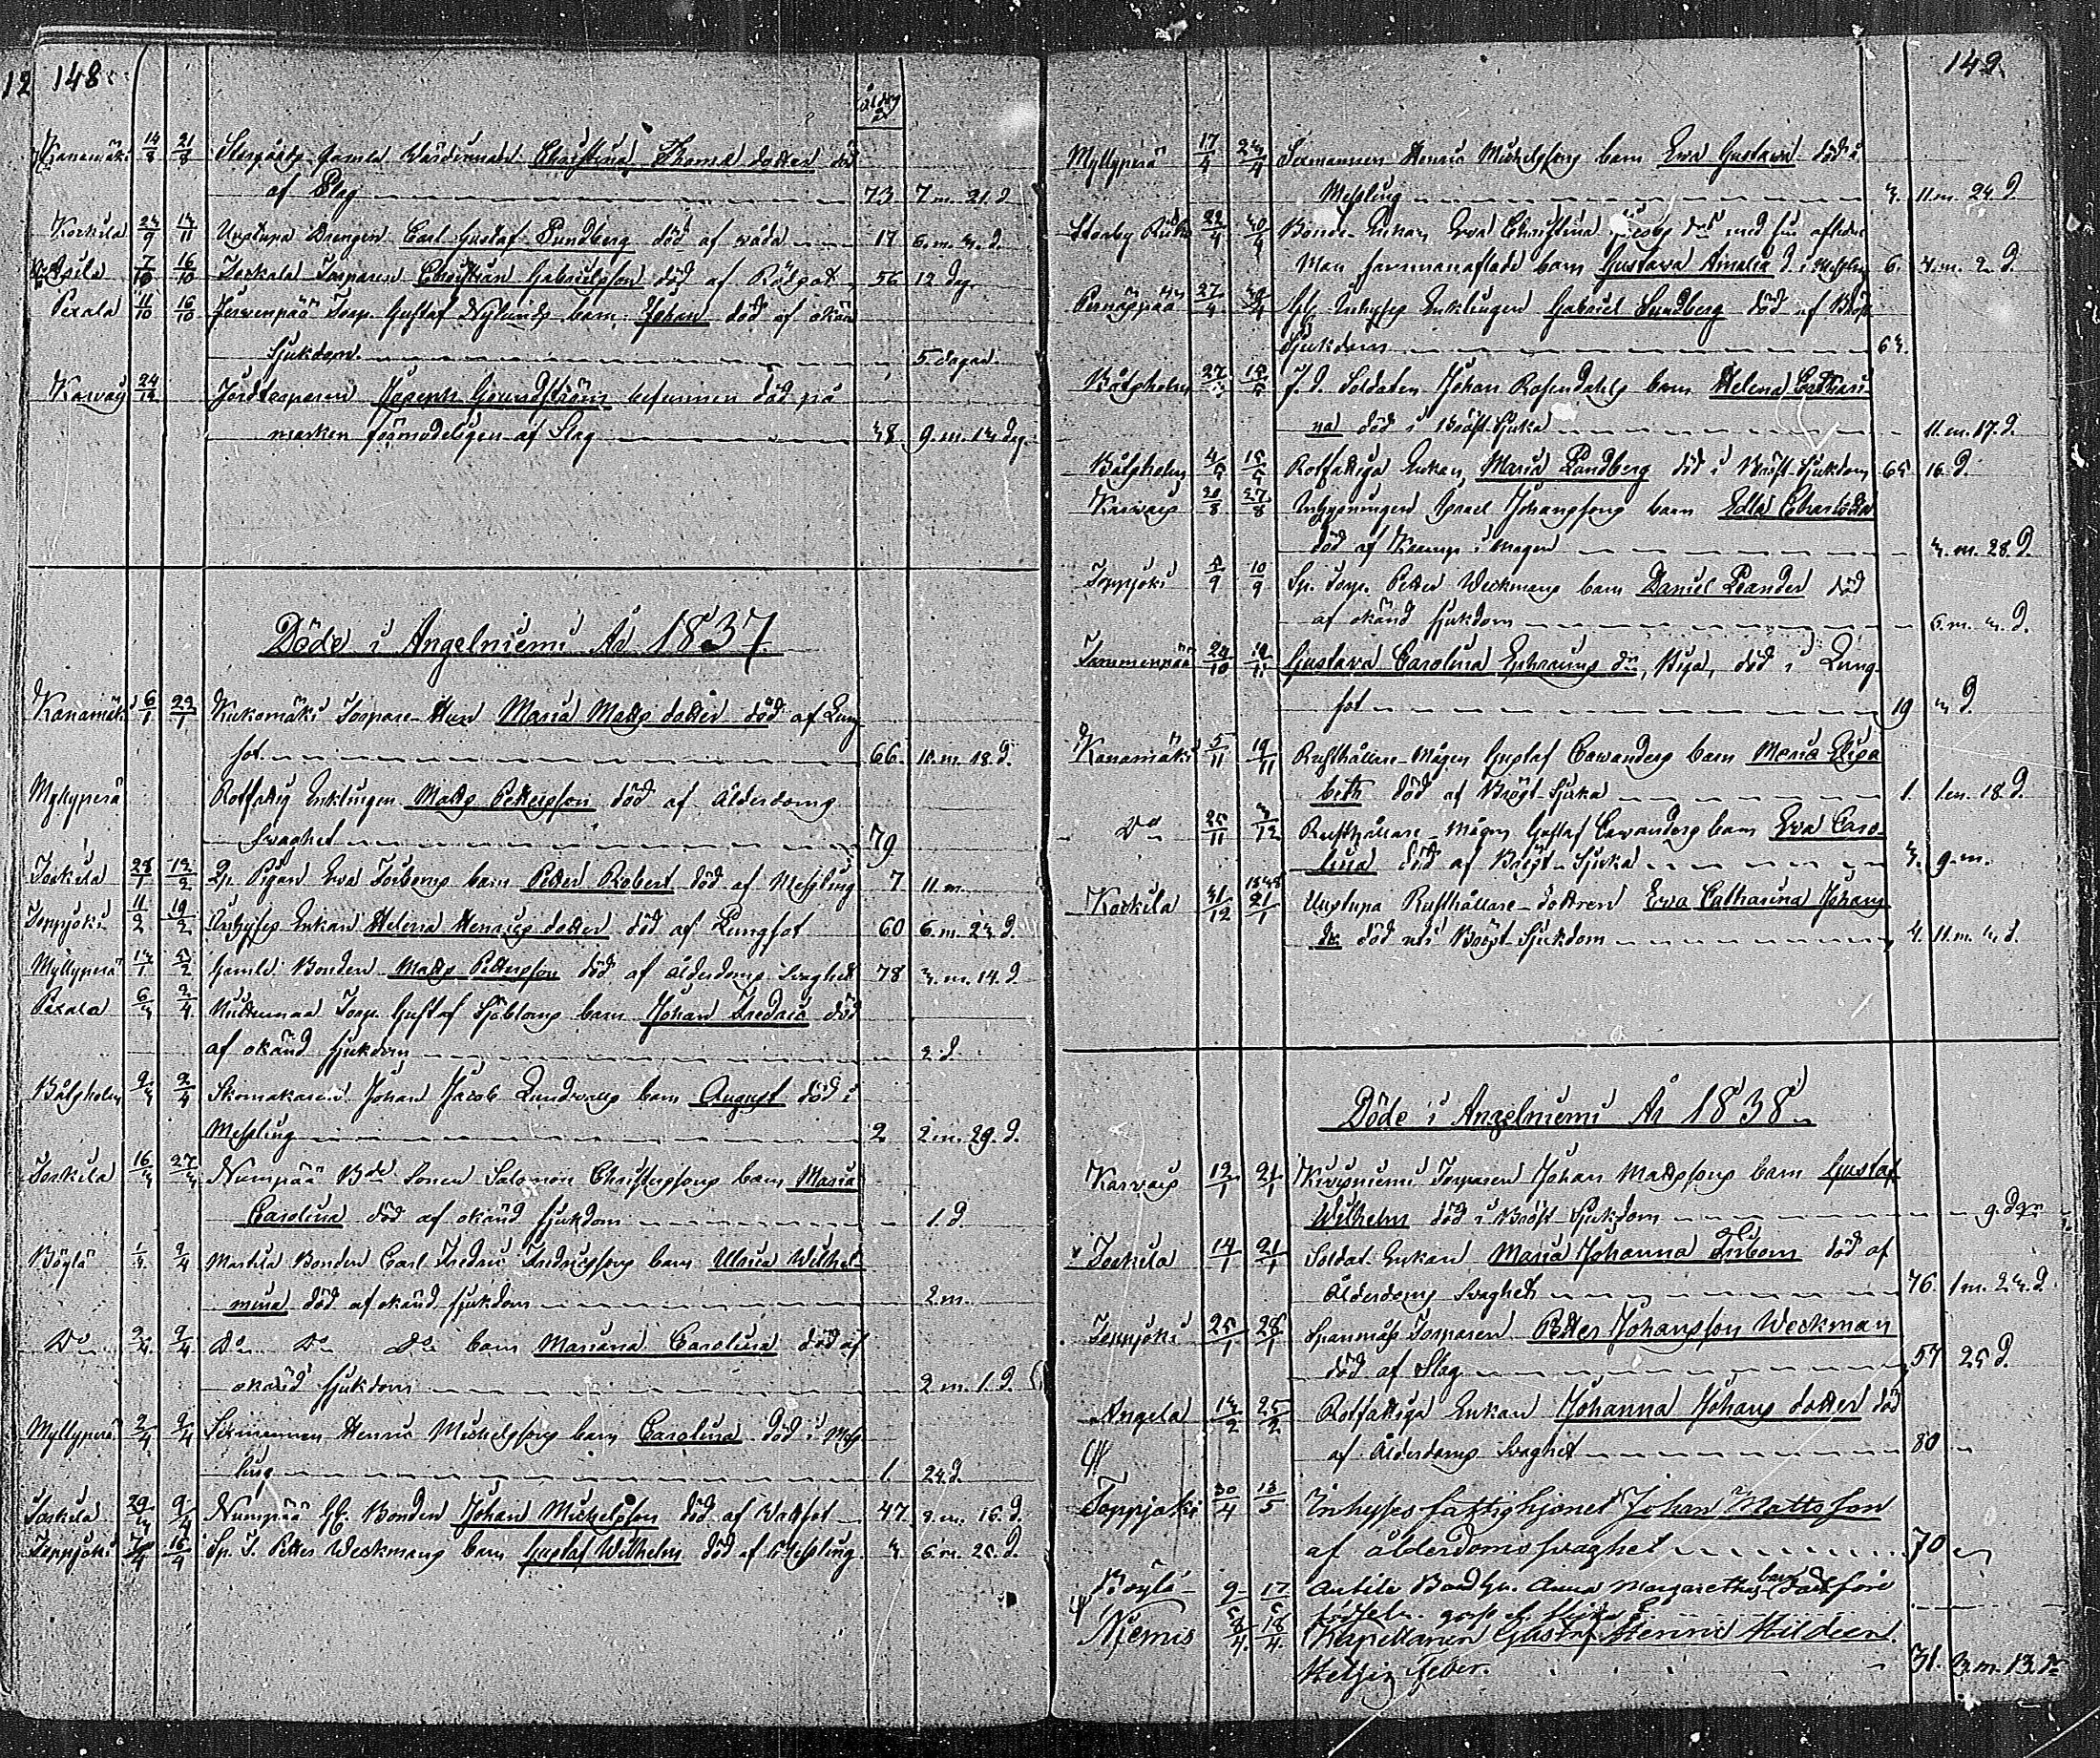 12 148.
Kanamäki 14/8 21/8 gamla Värdinnan Christina Thomæ dotter död
af Slag 73 7 m. 21. d
Korkila 23/9 Uustupa Drengen Carl Gustaf Sundberg död af våda 17 6. m. 3. d.
7/10 16/10 Torparen Christian Gabrielsson död af Rötfot 56 12 dag.
Pexala 11/10 16/10 Jerwenpää Torp. Gustaf Nylunds barn Johan död af okänd
sjukdom. 5 dagar.
Karvas 24/12 Joseph Grundström befunnen död på
marken förmodeligen af Slag 38 9. m. 13 dag.
Döde i Angelniemi År 1837.
Kanamäki 6/1 22/1 Kukomäki Torpare Maria Matts dotter död af Lung
sot 66. 10. m. 18. d.
Myllyperä Rotfattig Enklingen Matts Pettersson död af Ålderdoms
Svaghet 79
Torkila 28/1 12/2 Pigan Eva Torboms barn Petter Robert död af Messling 7 11. m.
Toppjoki 11/2 19/2 Inhyses Enkan Helena Henrics dotter död af Lungsot 60 6. m. 23. d.
Myllyperä 13/1 5/2 Gamla Bonden Matts Pettersson död af Ålderdoms Svaghet 78 3. m. 14. d
Pexala 6/3 2/4 Torp. Gustaf Sjöbloms barn Johan Fredric död
af okänd sjukdom 3. d.
Båtsholm 9/3 2/4 Skomakaren Johan Jacob Lundvalls barn August död i
Messling 2 2 m. 29. d.
Torkila 16/3 27/3 Numpää Bde Sonen Salomon Christerssons barn Maria
Carolina död af okänd sjukdom 1. d.
Böylä 1/4 2/4 Marttila Bonden Carl Fredric Fredricssons barn Ulrica Wilhel-
mina död af okänd sjukdom 2 m.
Do 2/4 9/4 Do Do Do barn Mariana Carolina död af
okänd sjukdom 2 m. 1. d.
Myllyperä 2/4 9/4 Sexmannen Henric Michelssons barn Carolina död i Mess
ling 1 24. d.
Torkila 29/3 9/4 Numpää Bonden Johan Michelsson död af Wattsot 47 3. m. 16. d.
Toppjoki 7/4 16/4 Sp. T. Petter Weckmans barn Gustaf Wilhelm död af Messling 3 6. m. 25. d.
149.
Myllyperä 17/4 23/4 Sexmannen Henric Michelssons barn Eva Gustava död i
Messling 3. 11. m. 24. d
22/4 30/4 Bonde Enkan Eva Christina med sin aflidne
Man sammanaflade barn Gustava Amalia d. i Messling 6. 4. m. 2. d.
27/4 Inhyses Enklingen Gabriel Sundberg död af Bröst
Sjukdom 63.
Båtsholm 15/5 f. d. Soldaten Johan Rosendahls barn Helena Cathari
na död i Bröst Sjuka 11. m. 17. d.
Båtsholm 4/5 15/5 Rotfattiga Enkan Maria Sandberg död i Bröst Sjukdom 65 16. d.
Karvais 20/8 27/8 Inhysningen Israel Johanssons barn Edla Charlotta
död af Kramp i magen 3. m. 28. d.
Toppjoki 5/9 10/9 Sp. Torp. Petter Weckmans barn Daniel Leander död
af okänd sjukdom 5. m. 3. d.
Tammenpää 24/10 Gustava Carolina Ephraims dr, Piga, död i Lung-
sot 19 3 d.
Kanamäki 5/11 19/11 Rusthållare Mågen Gustaf Cavanders barn Maria Elisa
beth död af Bröst Sjuka 1. 1 m. 18. d.
Do 25/11 3/12 Rusthållare Mågen Gustaf Cavanders barn Eva Caro
lina död af Bröst Sjuka 3. 9. m.
Korkila 31/12 1838 21/1 Uustupa Rusthållare dottren Eva Catharina Johans
dr. död uti Bröst Sjukdom 4. 11. m. 4. d.
Döde i Angelniemi År 1838.
Karvais 12/1 21/1 Kirvesniemi Torparen Johan Mattssons barn Gustaf
Wilhelm död i Bröst Sjukdom 9. dgr
Torkila 14/1 21/1 Soldat Enkan Maria Johanna Tubom död af
Ålderdoms Svaghet 76. 1 m. 23. d.
Toppjoki 25/1 28/1 Spannäss Torparen Petter Johansson Weckman
död af Slag 57 25 d.
Angela 13/2 25/2 Rotfattiga Enkan Johanna Johans dotter död
af Ålderdoms Svaghet 80
Toppjoki 30/4 13/5 Inhyses fattighjonet Johan Mattsson
af ålderdoms svaghet 70
Böylä 9/5 17/5 Anttila Anna Margarethas barn död före
födseln.
Niemis 8/4. 16/4. Kapellanen Gustaf Henric Hildeen.
Hetsig Feber. 31. 3. m. 13. dr